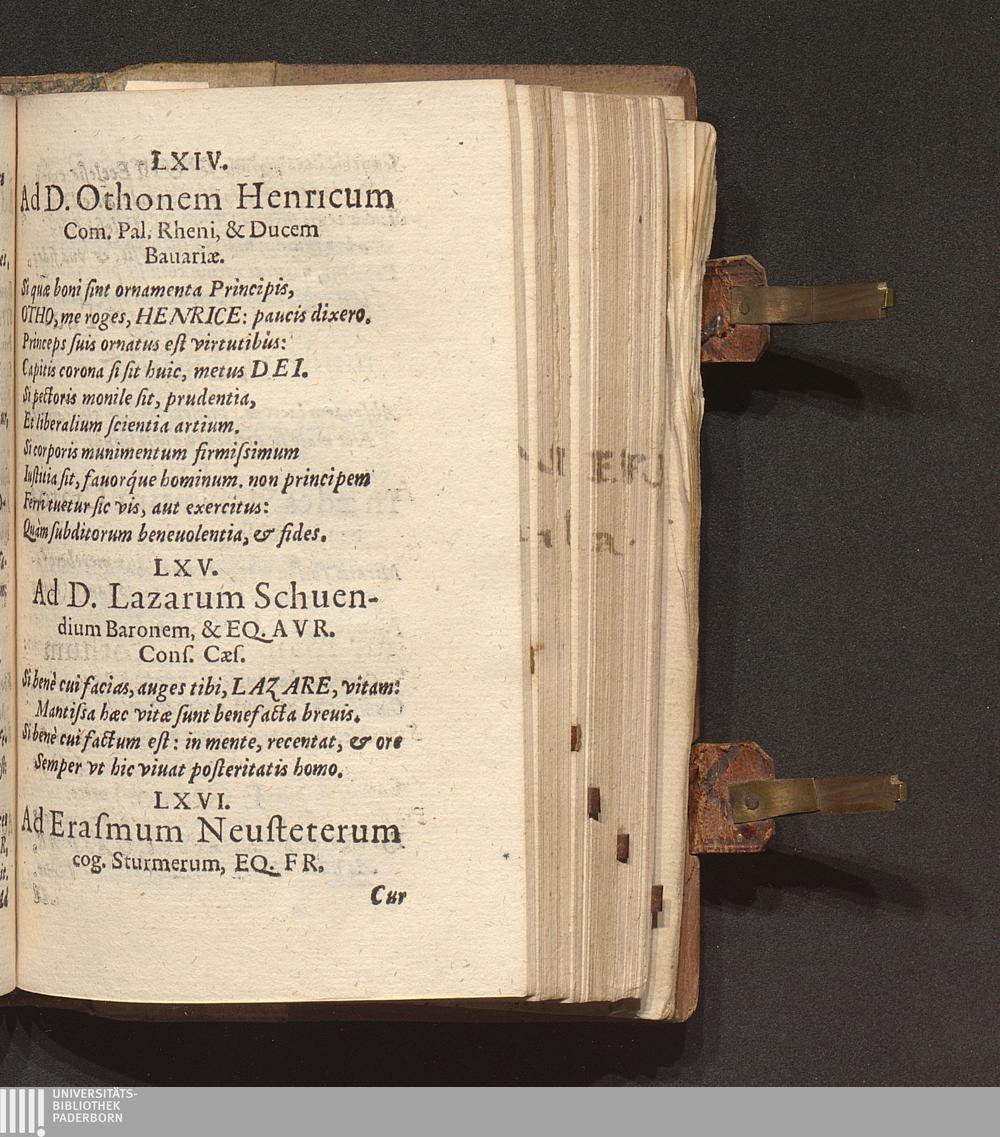 LXIV.
Ad D. Othonem Henricum
Com. Pal. Rheni, & Ducem
Bauariæ.
Si quæ boni ſint ornamenta Principis,
OTHO, me roges, HENRICE: paucis dixero.
Princeps ſuis ornatus eſt virtutibus:
Capitis corona ſi ſit huic, metus DEI.
Si pectoris monile ſit, prudentia,
Et liberalium ſcientia artium.
Si corporis munimentum firmiſsimum
Iuſtitia ſit, fauorq́ue hominum. non principem
Ferri tuetur ſic vis, aut exercitus:
Quàm ſubditorum beneuolentia, & fides.
LXV.
Ad D. Lazarum Schuen-
dium Baronem, & EQ. AVR.
Conſ. Cæſ.
Si benè cui facias, auges tibi, LAZARE, vitam:
Mantiſsa hæc vitæ ſunt benefacta breuis.
Si benè cui factum eſt: in mente, recentat, & ore
Semper vt hic viuat poſteritatis homo.
LXVI.
Ad Eraſmum Neuſteterum
cog. Sturmerum, EQ. FR.
Cur
UNIVERSITÄTS-
BIBLIOTHEK
PADERBORN